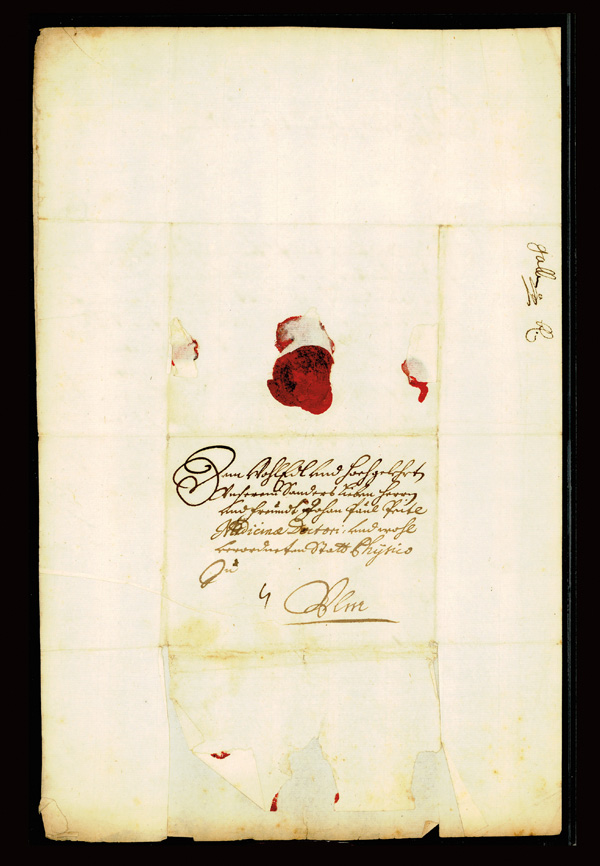 Dem Wohl Edl und Hochgelehrten
Unserem Sonders lieben Herrn
und freündt Johan Paül
Medicinæ Doctori, und wohl
verordneten Statt Physico
Zu
Ulm